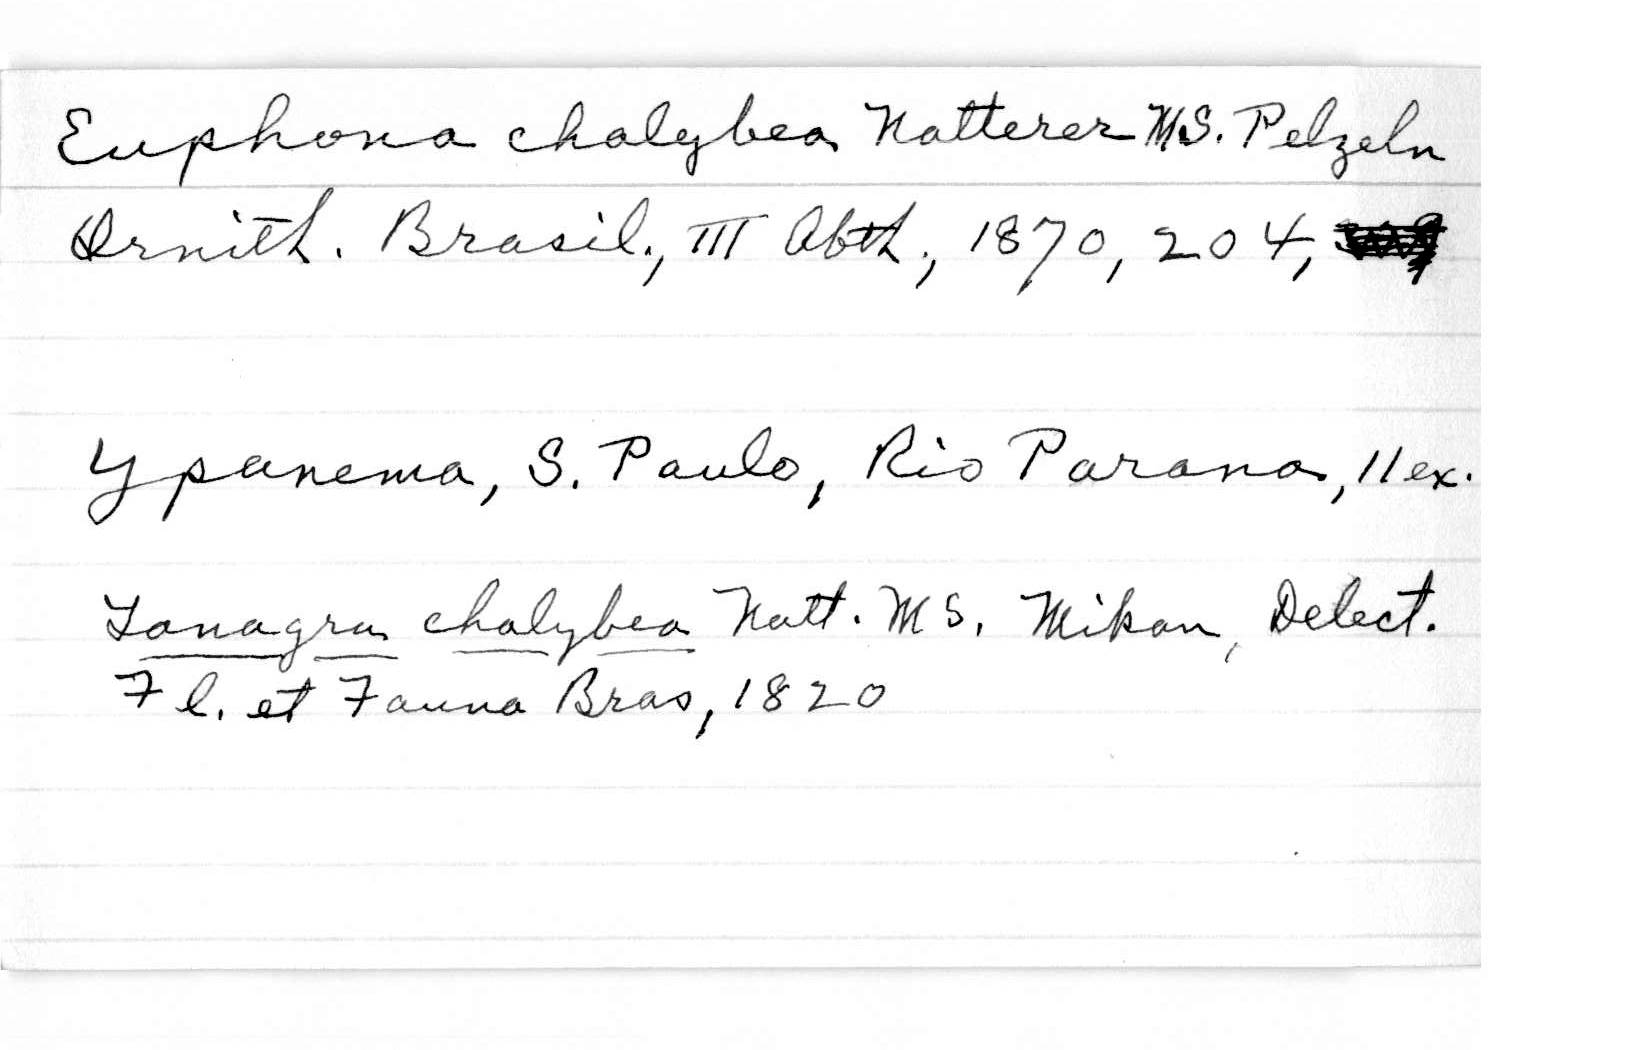 Euphona chalybea Natterer MS. Pelzeln
Ornith. Brasil., III Abth., 1870, 204,
Ypanema, S. Paulo, Rio Parana, 11 ex.
Tanagra chalybea Natt. MS. Mikan, Delect.
Fl. et Fauna Bras, 1820